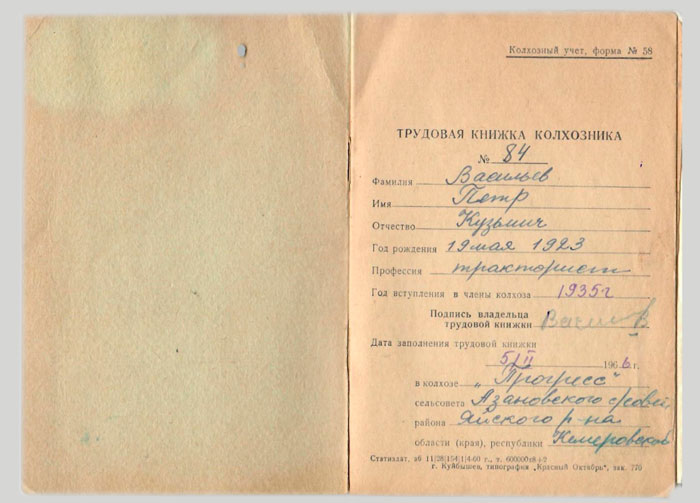 Колхозный учет, форма № 58
ТРУДОВАЯ КНИЖКА КОЛХОЗНИКА
№ 84
Фамилия Васильев
Имя Петр
Отчество Кузьмич
Год рождения 19 мая 1923
Профессия тракторист
Год вступления в члены колхоза 1935 г
Подпись владельца
трудовой книжки
Дата заполнения трудовой книжки
5/II 1966 г.
в колхозе „Прогресс"
сельсовета Азановского с/совет
района Яйского р-на
области (края), республики Кемеровской
Статиздат, зб 11/28|154|1/4-60 г., т. 600000
г. Куйбышев, типография „Красный Октябрь", зак. 770